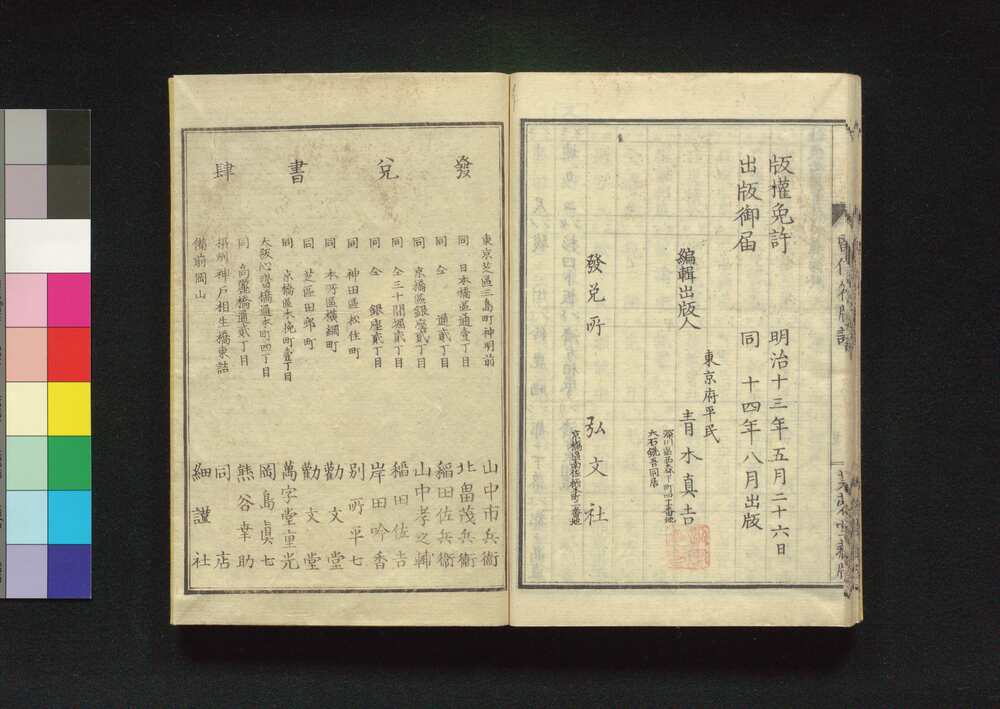 版權免許 明治十三年五月二十六日
出版御届 同 十四年八月出版
東京府平民
編輯出版人 青木真吉
大石銑吾同居
發兌所 弘文社
發兌書肆
東京芝區三島町神明前 山中市兵衞
同 日本橋區通壹丁目 北畠茂兵衞
同 仝 通貳丁目 稲田佐兵衞
同 京橋區銀座貳丁目 山中孝之輔
同 仝三十間堀貳丁目 稲田佐吉
同 仝 銀座貳丁目 岸田吟香
同 神田區松住町 別所平七
同 本所區横網町 勸文堂
同 芝區田町 勸文堂
同 京橋區木挽町壹丁目 萬字堂重光
大阪心齋橋通本町四丁目 岡島真七
同 高麗橋通貳丁目 熊谷幸助
摂州神戸相生橋東詰 同店
備前岡山 細謹社